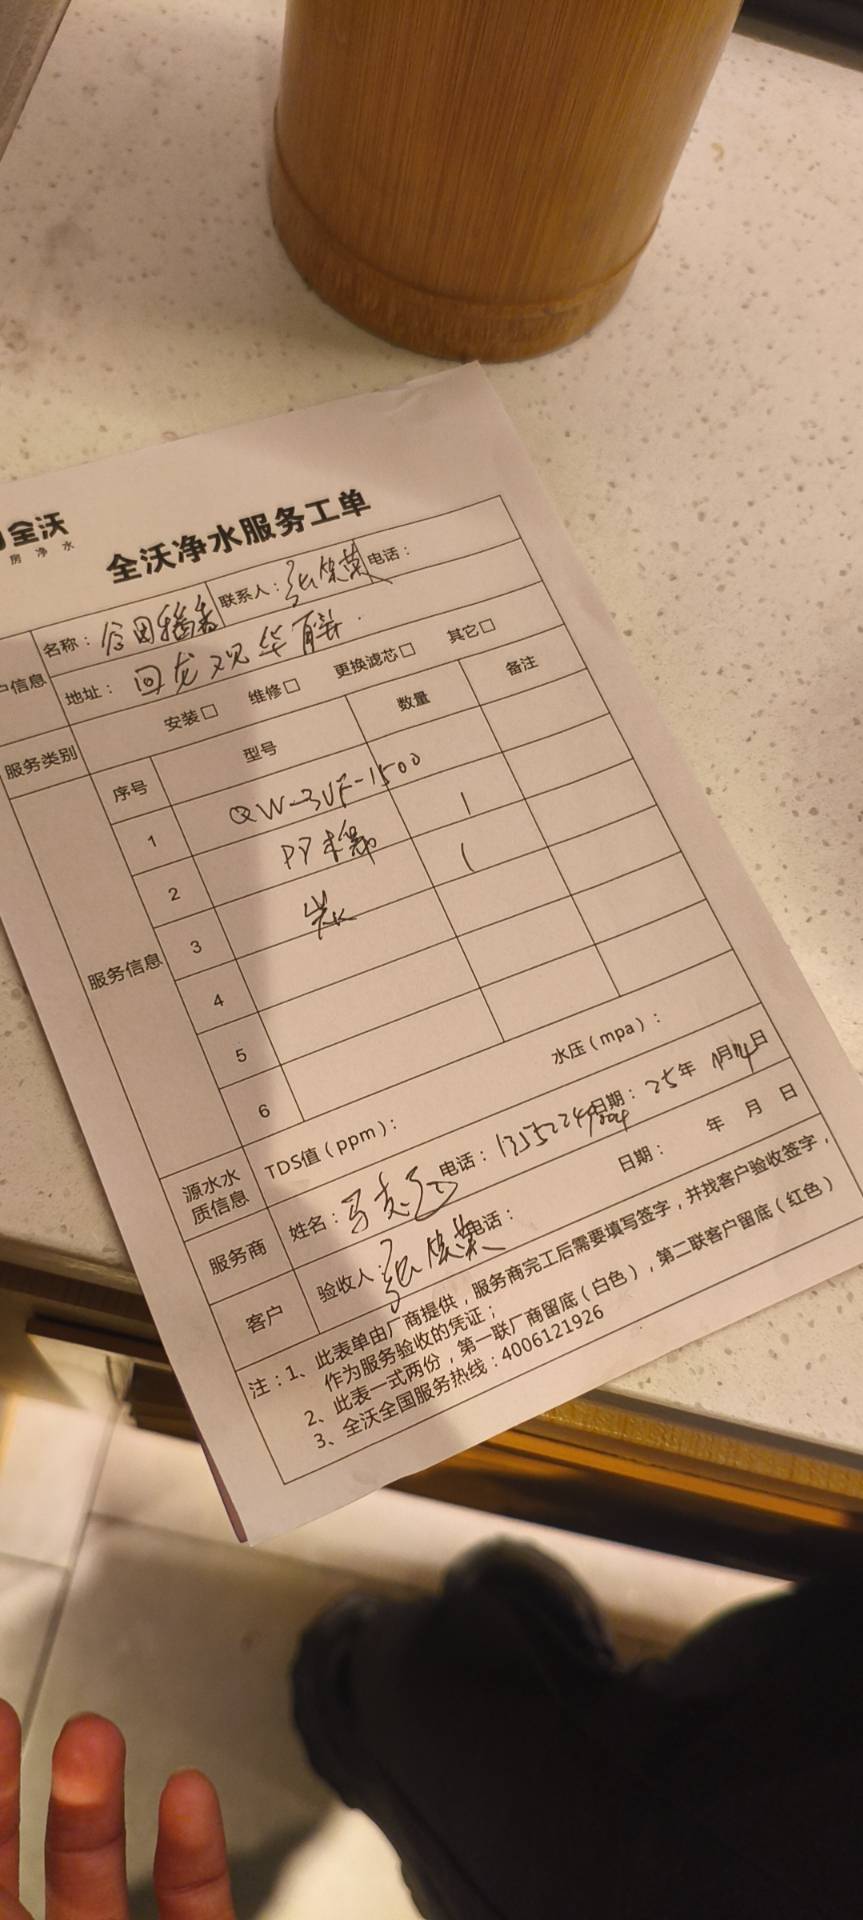 全沃
房净水
全沃净水服务工单
户信息
名称： 联系人： 电话：
地址：回龙观华联
服务类别 安装□ 维修□ 更换滤芯□ 其它□
服务信息
序号 型号 数量 备注
1 QW-3UF-1500
2 PP棉 1
3 炭 1
4
5
6
源水水质信息 TDS值（ppm）： 水压（mpa）：
服务商 姓名： 电话： 日期：25年 月14日
客户 验收人： 电话： 日期： 年 月 日
注：1、此表单由厂商提供，服务商完工后需要填写签字，并找客户验收签字，
作为服务验收的凭证；
2、此表一式两份，第一联厂商留底（白色），第二联客户留底（红色）
3、全沃全国服务热线：4006121926